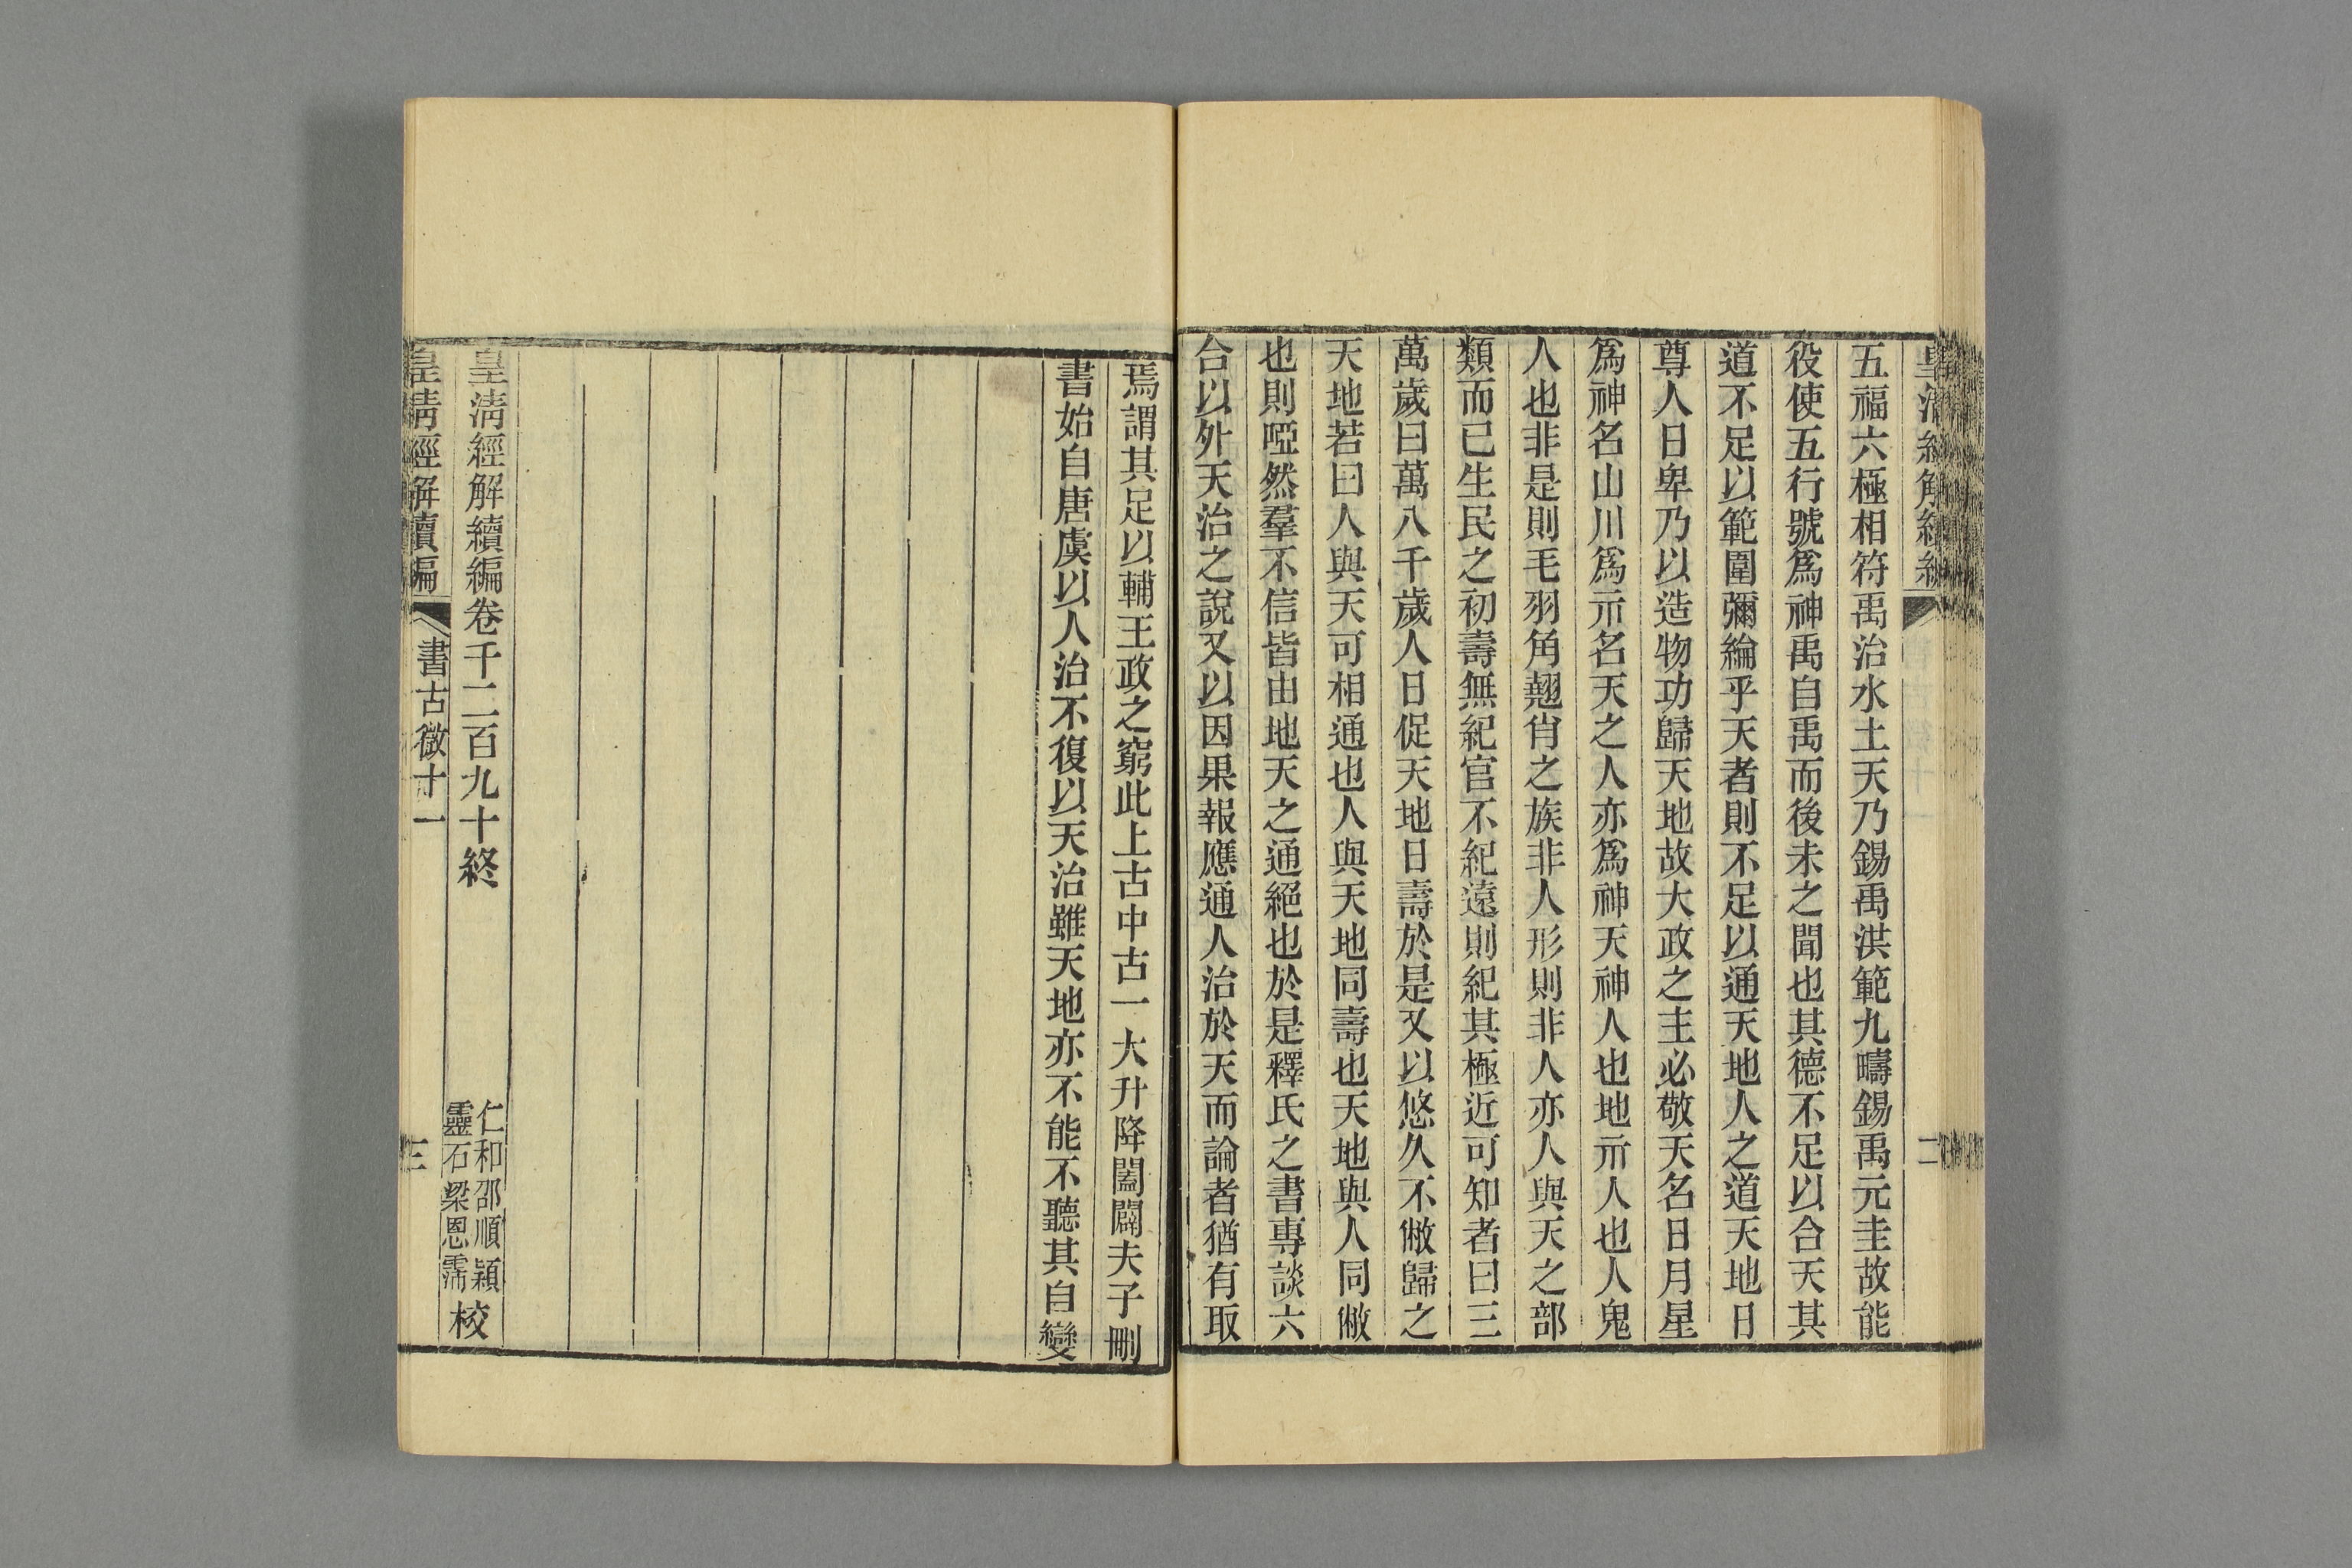 皇清經解續編
二
五福六極相符禹治水土天乃錫禹洪範九疇錫禹元圭故能
役使五行號爲神禹自禹而後未之聞也其德不足以合天其
道不足以範圍彌綸乎天者則不足以通天地人之道天地日
尊人日卑乃以造物功歸天地故大政之主必敬天名日月星
爲神名山川爲示名天之人亦爲神天神人也地示人也人鬼
人也非是則毛羽角翹肖之族非人形則非人亦人與天之部
類而已生民之初壽無紀官不紀遠則紀其極近可知者曰三
萬歲曰萬八千歲人日促天地日壽於是又以悠久不敝歸之
天地若曰人與天可相通也人與天地同壽也天地與人同敝
也則啞然羣不信皆由地天之通絕也於是釋氏之書專談六
合以外天治之說又以因果報應通人治於天而論者猶有取
焉謂其足以輔王政之窮此上古中古一大升降闔闢夫子刪
書始自唐虞以人治不復以天治雖天地亦不能不聽其自變
皇清經解續編卷千二百九十終
仁和邵順穎
靈石梁恩霈
校
皇清經解續編
書古微十一
三